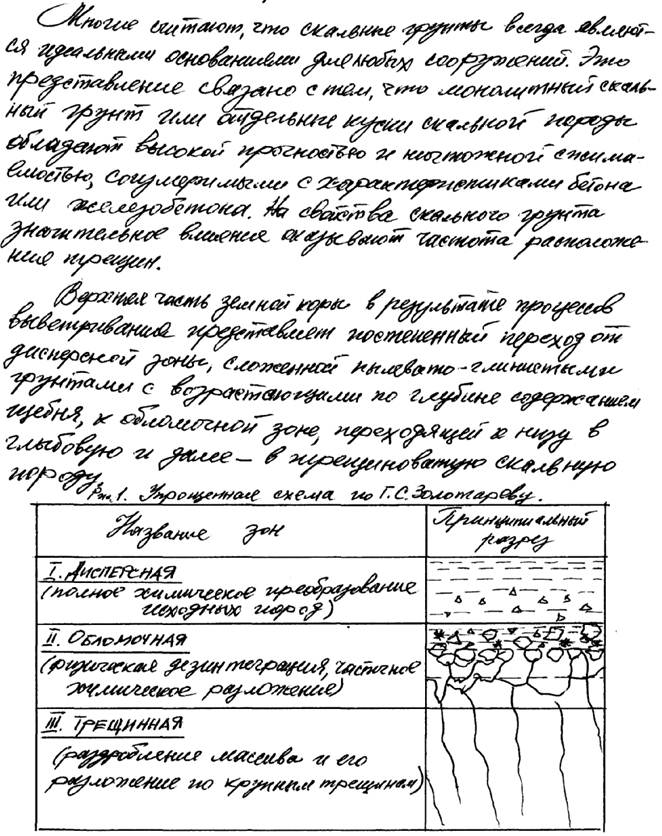 Многие считают, что скальные грунты всегда являют-
ся идеальными основаниями для любых сооружений. Это
представление связано с тем, что монолитный скаль-
ный грунт или отдельные куски скальной породы
обладают высокой прочностью и ничтожной сжима-
емостью, соизмеримыми с характеристиками бетона
или железобетона. На свойства скального грунта
значительное влияние оказывают частота расположе-
ния трещин.
Верхняя часть земной коры в результате процессов
выветривания представляет постепенный переход от
дисперсной зоны, сложенной пылевато-глинистыми
грунтами с возрастающими по глубине содержанием
щебня, к обломочной зоне, переходящей к низу в
глыбовую и далее – в трещиноватую скальную
породу.
Рис. 1. Упрощенная схема по Г.С. Золотареву.
Название зон
Принципиальный
разрез
I. Дисперсная
(полное химическое преобразование
исходных пород)
II. Обломочная
(физическая дезинтеграция, частичное
химическое разложение)
III. Трещинная
(раздробление массива и его
разложение по крупным трещинам)